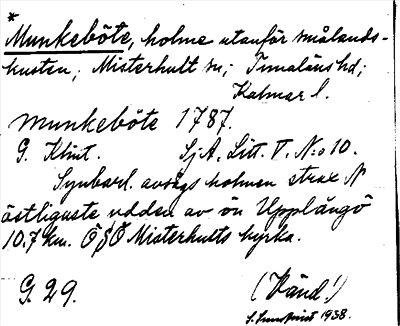 *
Munkeböte, holme utanför smålands-
kusten; Misterhult sn; Tunaläns hd;
Kalmar l.
Munkeböte 1787.
G. Klint. Sj.A. Litt. V. N:o 10.
Synbarl. avsågs holmen strax N
östligaste udden av ön Upplångö
10.7 km. ÖSÖ Misterhults kyrka.
G. 29. (Vänd!)
1938.